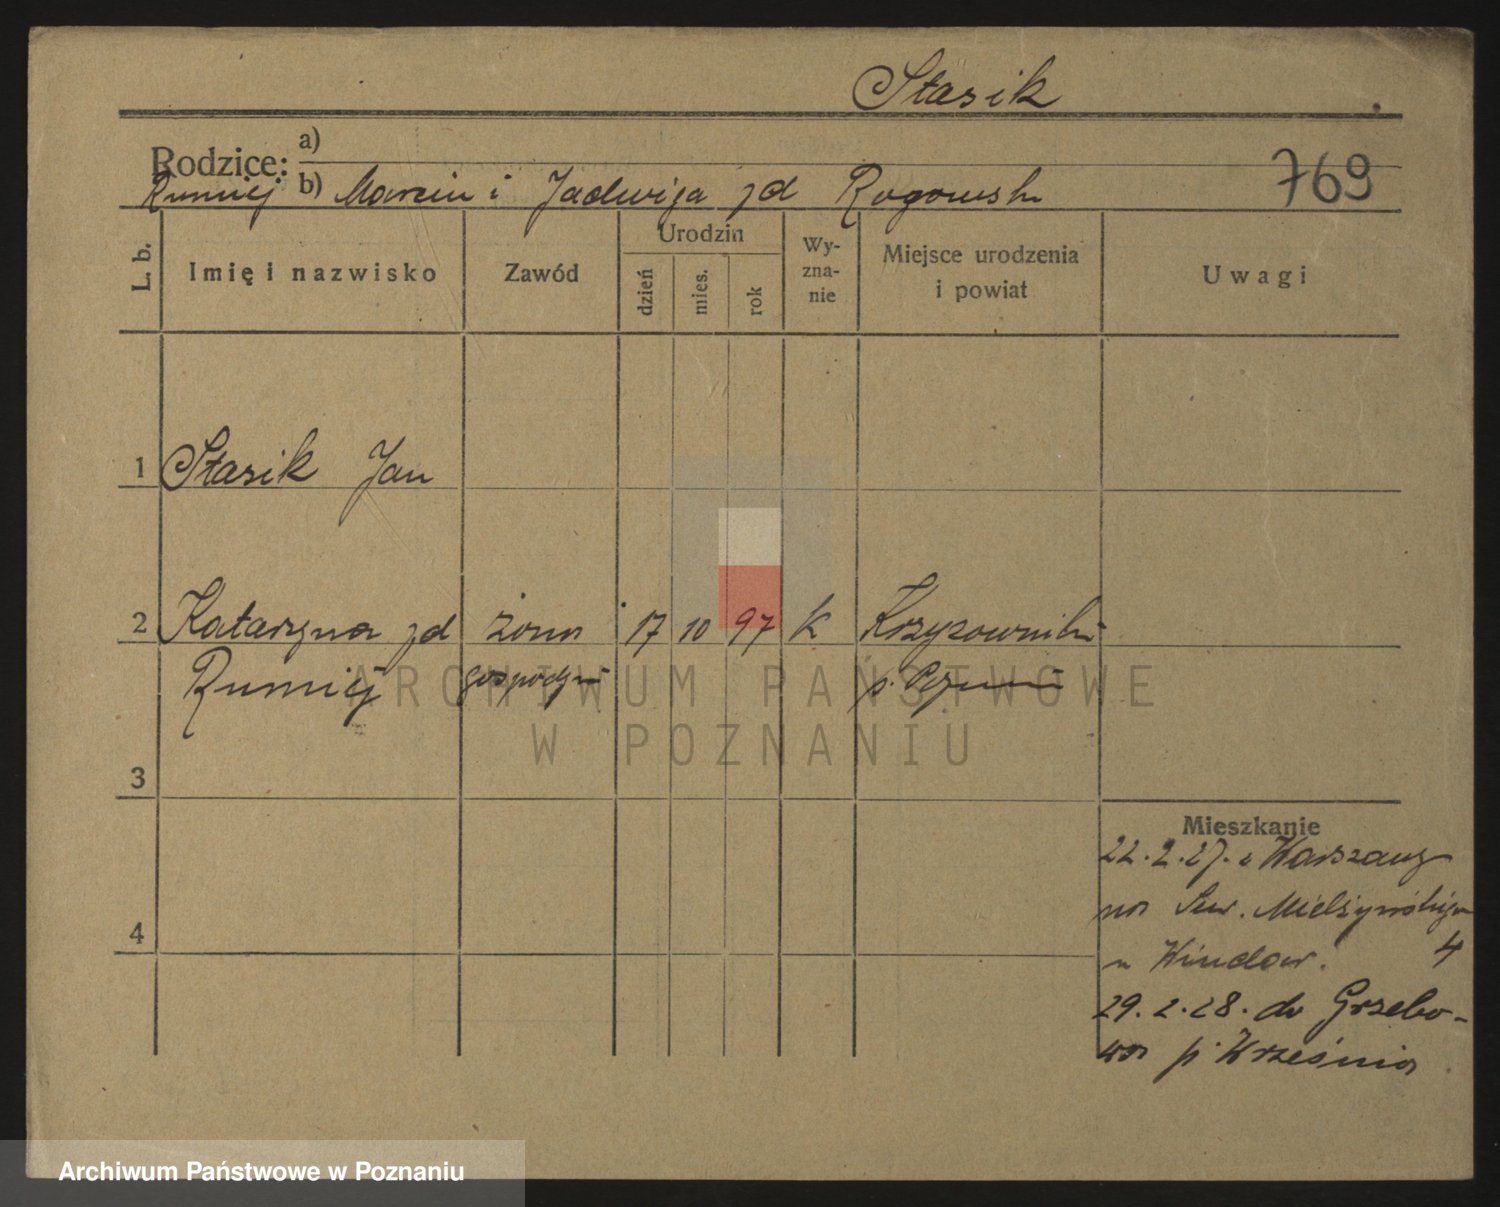 Stasik
Rodzice: a)
b) Marcin i Jadwiga zd Rogowsk
769
L. b.
Imię i nazwisko
Zawód
Urodzin
dzień
mies.
rok
Wy-
zna-
nie
Miejsce urodzenia
i powiat
Uwagi
1 Stasik Jan
2 Katarzyna zd żona 17 10 97 k Krzyżowniki
gospodyni p.
3
ARCHIWUM PAŃSTWOWE
W POZNANIU
4
Mieszkanie
22.2.27. z Warszawy
na Sew. Mielżyńskiego
u 4
29.2.28. do Grzebo-
wa p. Września
Archiwum Państwowe w Poznaniu